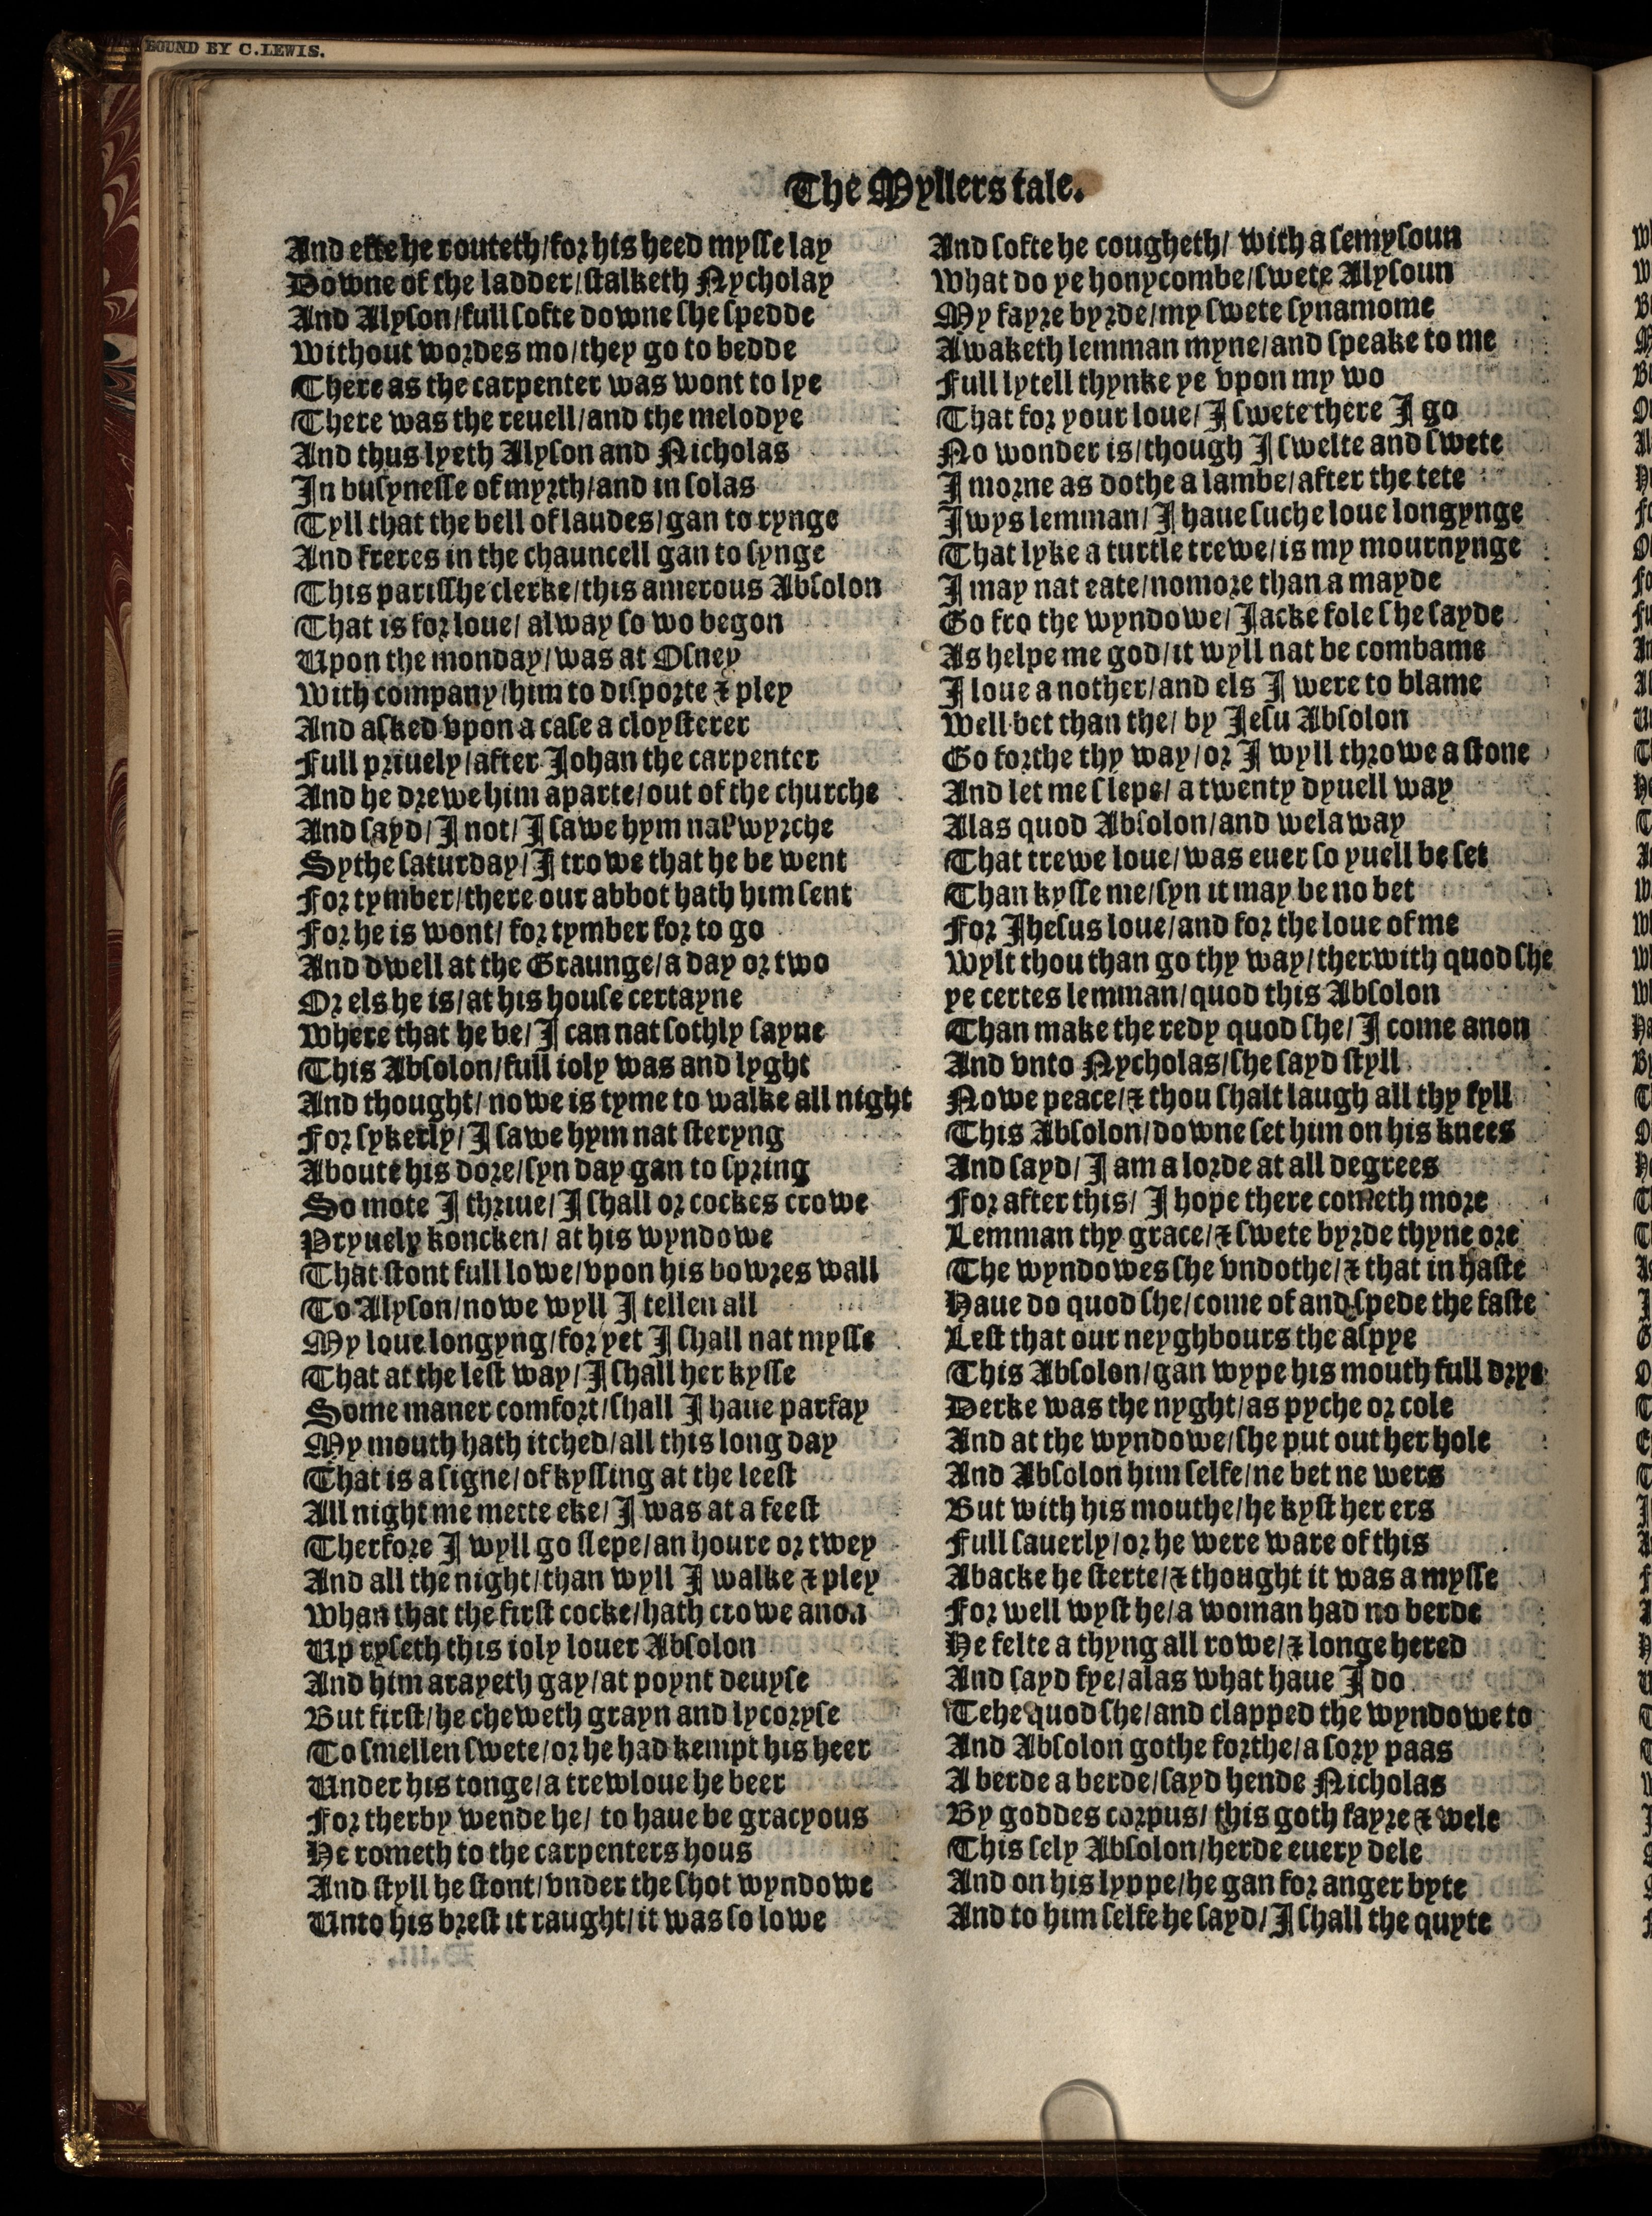 BOUND BY C.LEWIS.
The Myllers tale.
And efte he routeth/for his heed mysse lay
Downe of the ladder/stalketh Nycholay
And Alyson/full softe downe she spedde
Without wordes mo/they go to bedde
There as the carpenter was wont to lye
There was the reuell/and the melodye
And thus lyeth Alyson and Nicholas
In busynesse of myrth/and in solas
Tyll that the bell of laudes/gan to rynge
And freres in the chauncell gan to synge
This parisshe clerke/this amerous Absolon
That is for loue/ alway so wo begon
Upon the monday/was at Osney
With company/him to disporte & pley
And asked vpon a case a cloysterer
Full priuely/after Johan the carpenter
And he drewe him aparte/out of the churche
And sayd/I not/I sawe hym nat wyrche
Sythe saturday/I trowe that he be went
For tymber/there our abbot hath him sent
For he is wont/ for tymber for to go
And dwell at the Graunge/a day or two
Or els he is/at his house certayne
Where that he be/I can nat sothly sayne
This Absolon/full ioly was and lyght
And thought/ nowe is tyme to walke all night
For sykerly/I sawe hym nat steryng
Aboute his dore/syn day gan to spring
So mote I thriue/I shall or cockes crowe
Pryuely koncken/ at his wyndowe
That stont full lowe/vpon his bowres wall
To Alyson/nowe wyll I tellen all
My loue longyng/for yet I shall nat mysse
That at the lest way/I shall her kysse
Some maner comfort/shall I haue parfay
My mouth hath itched/all this long day
That is a signe/of kyssing at the leest
All night me mette eke/I was at a feest
Therfore I wyll go slepe/an houre or twey
And all the night/than wyll I walke & pley
Whan that the first cocke/hath crowe anon
Up ryseth this ioly louer Absolon
And him arayeth gay/at poynt deuyse
But first/he cheweth grayn and lycoryse
To smellen swete/or he had kempt his heer
Under his tonge/a trewloue he beer
For therby wende he/ to haue be gracyous
He rometh to the carpenters hous
And styll he stont/vnder the shot wyndowe
Unto his brest it raught/it was so lowe
And softe he cougheth/ with a semysoun
What do ye honycombe/swete Alysoun
My fayre byrde/my swete synamome
Awaketh lemman myne/and speake to me
Full lytell thynke ye vpon my wo
That for your loue/I swete there I go
No wonder is/though I swelte and swete
I morne as dothe a lambe/after the tete
Iwys lemman/I haue suche loue longynge
That lyke a turtle trewe/is my mournynge
I may nat eate/nomore than a mayde
Go fro the wyndowe/Jacke fole she sayde
As helpe me god/it wyll nat be combame
I loue a nother/and els I were to blame
Well bet than the/ by Jesu Absolon
Go forthe thy way/or I wyll throwe a stone
And let me slepe/ a twenty dyuell way
Alas quod Absolon/and welaway
That trewe loue/was euer so yuell be set
Than kysse me/syn it may be no bet
For Jhesus loue/and for the loue of me
Wylt thou than go thy way/therwith quod she
ye certes lemman/quod this Absolon
Than make the redy quod she/I come anon
And vnto Nycholas/she sayd styll
Nowe peace/& thou shalt laugh all thy fyll
This Absolon/downe set him on his knees
And sayd/I am a lorde at all degrees
For after this/ I hope there cometh more
Lemman thy grace/& swete byrde thyne ore
The wyndowe she vndothe/& that in haste
Haue do quod she/come of and spede the faste
Lest that our neyghbours the aspye
This Absolon/gan wype his mouth full drye
Derke was the nyght/as pyche or cole
And at the wyndowe/she put out her hole
And Absolon him selfe/ne bet ne wers
But with his mouthe/he kyst her ers
Full sauerly/or he were ware of this
Abacke he sterte/& thought it was amysse
For well wyst he/a woman had no berde
He felte a thyng all rowe/& longe hered
And sayd fye/alas what haue I do
Tehe quod she/and clapped the wyndowe to
And Absolon gothe forthe/a sory paas
A berde a berde/sayd hende Nicholas
By goddes corpus/ this goth fayre & wele
This sely Absolon/herde euery dele
And on his lyppe/he gan for anger byte
And to him selfe he sayd/I shall the quyte